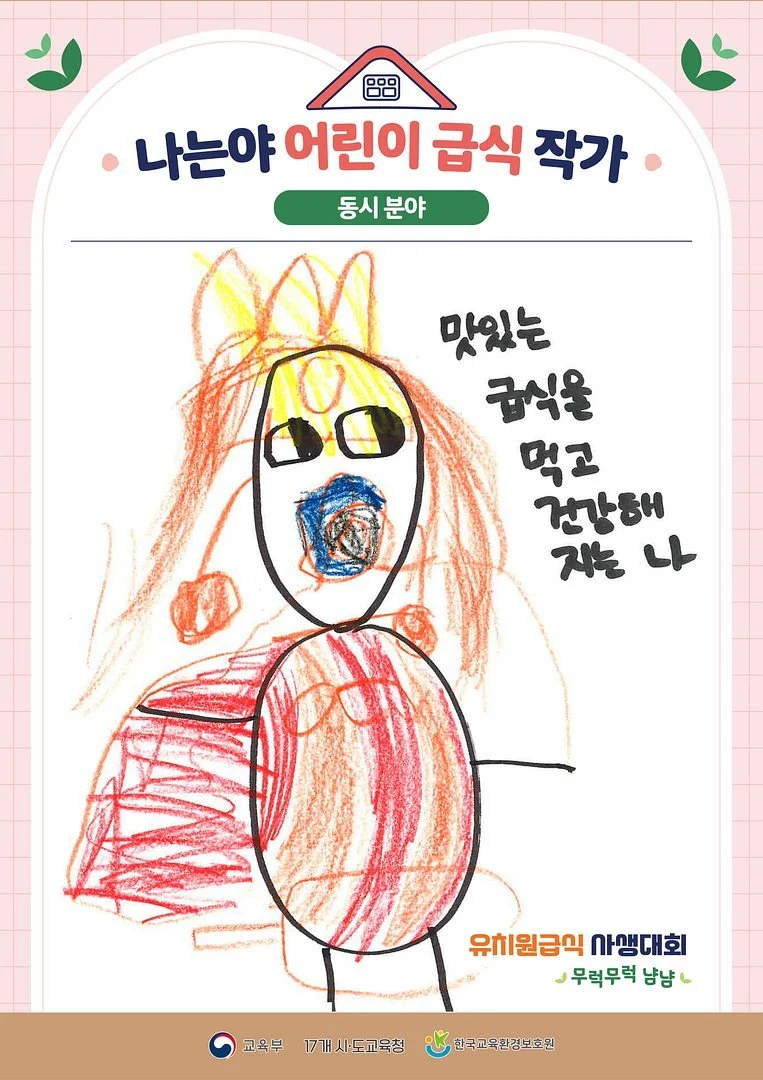 나는야 어린이 급식 작가
동시 분야
맛있는
급식을
먹고
건강해
지는 나
유치원급식 사생대회
무럭무럭 냠냠
교육부 17개 시·도교육청 한국교육환경보호원